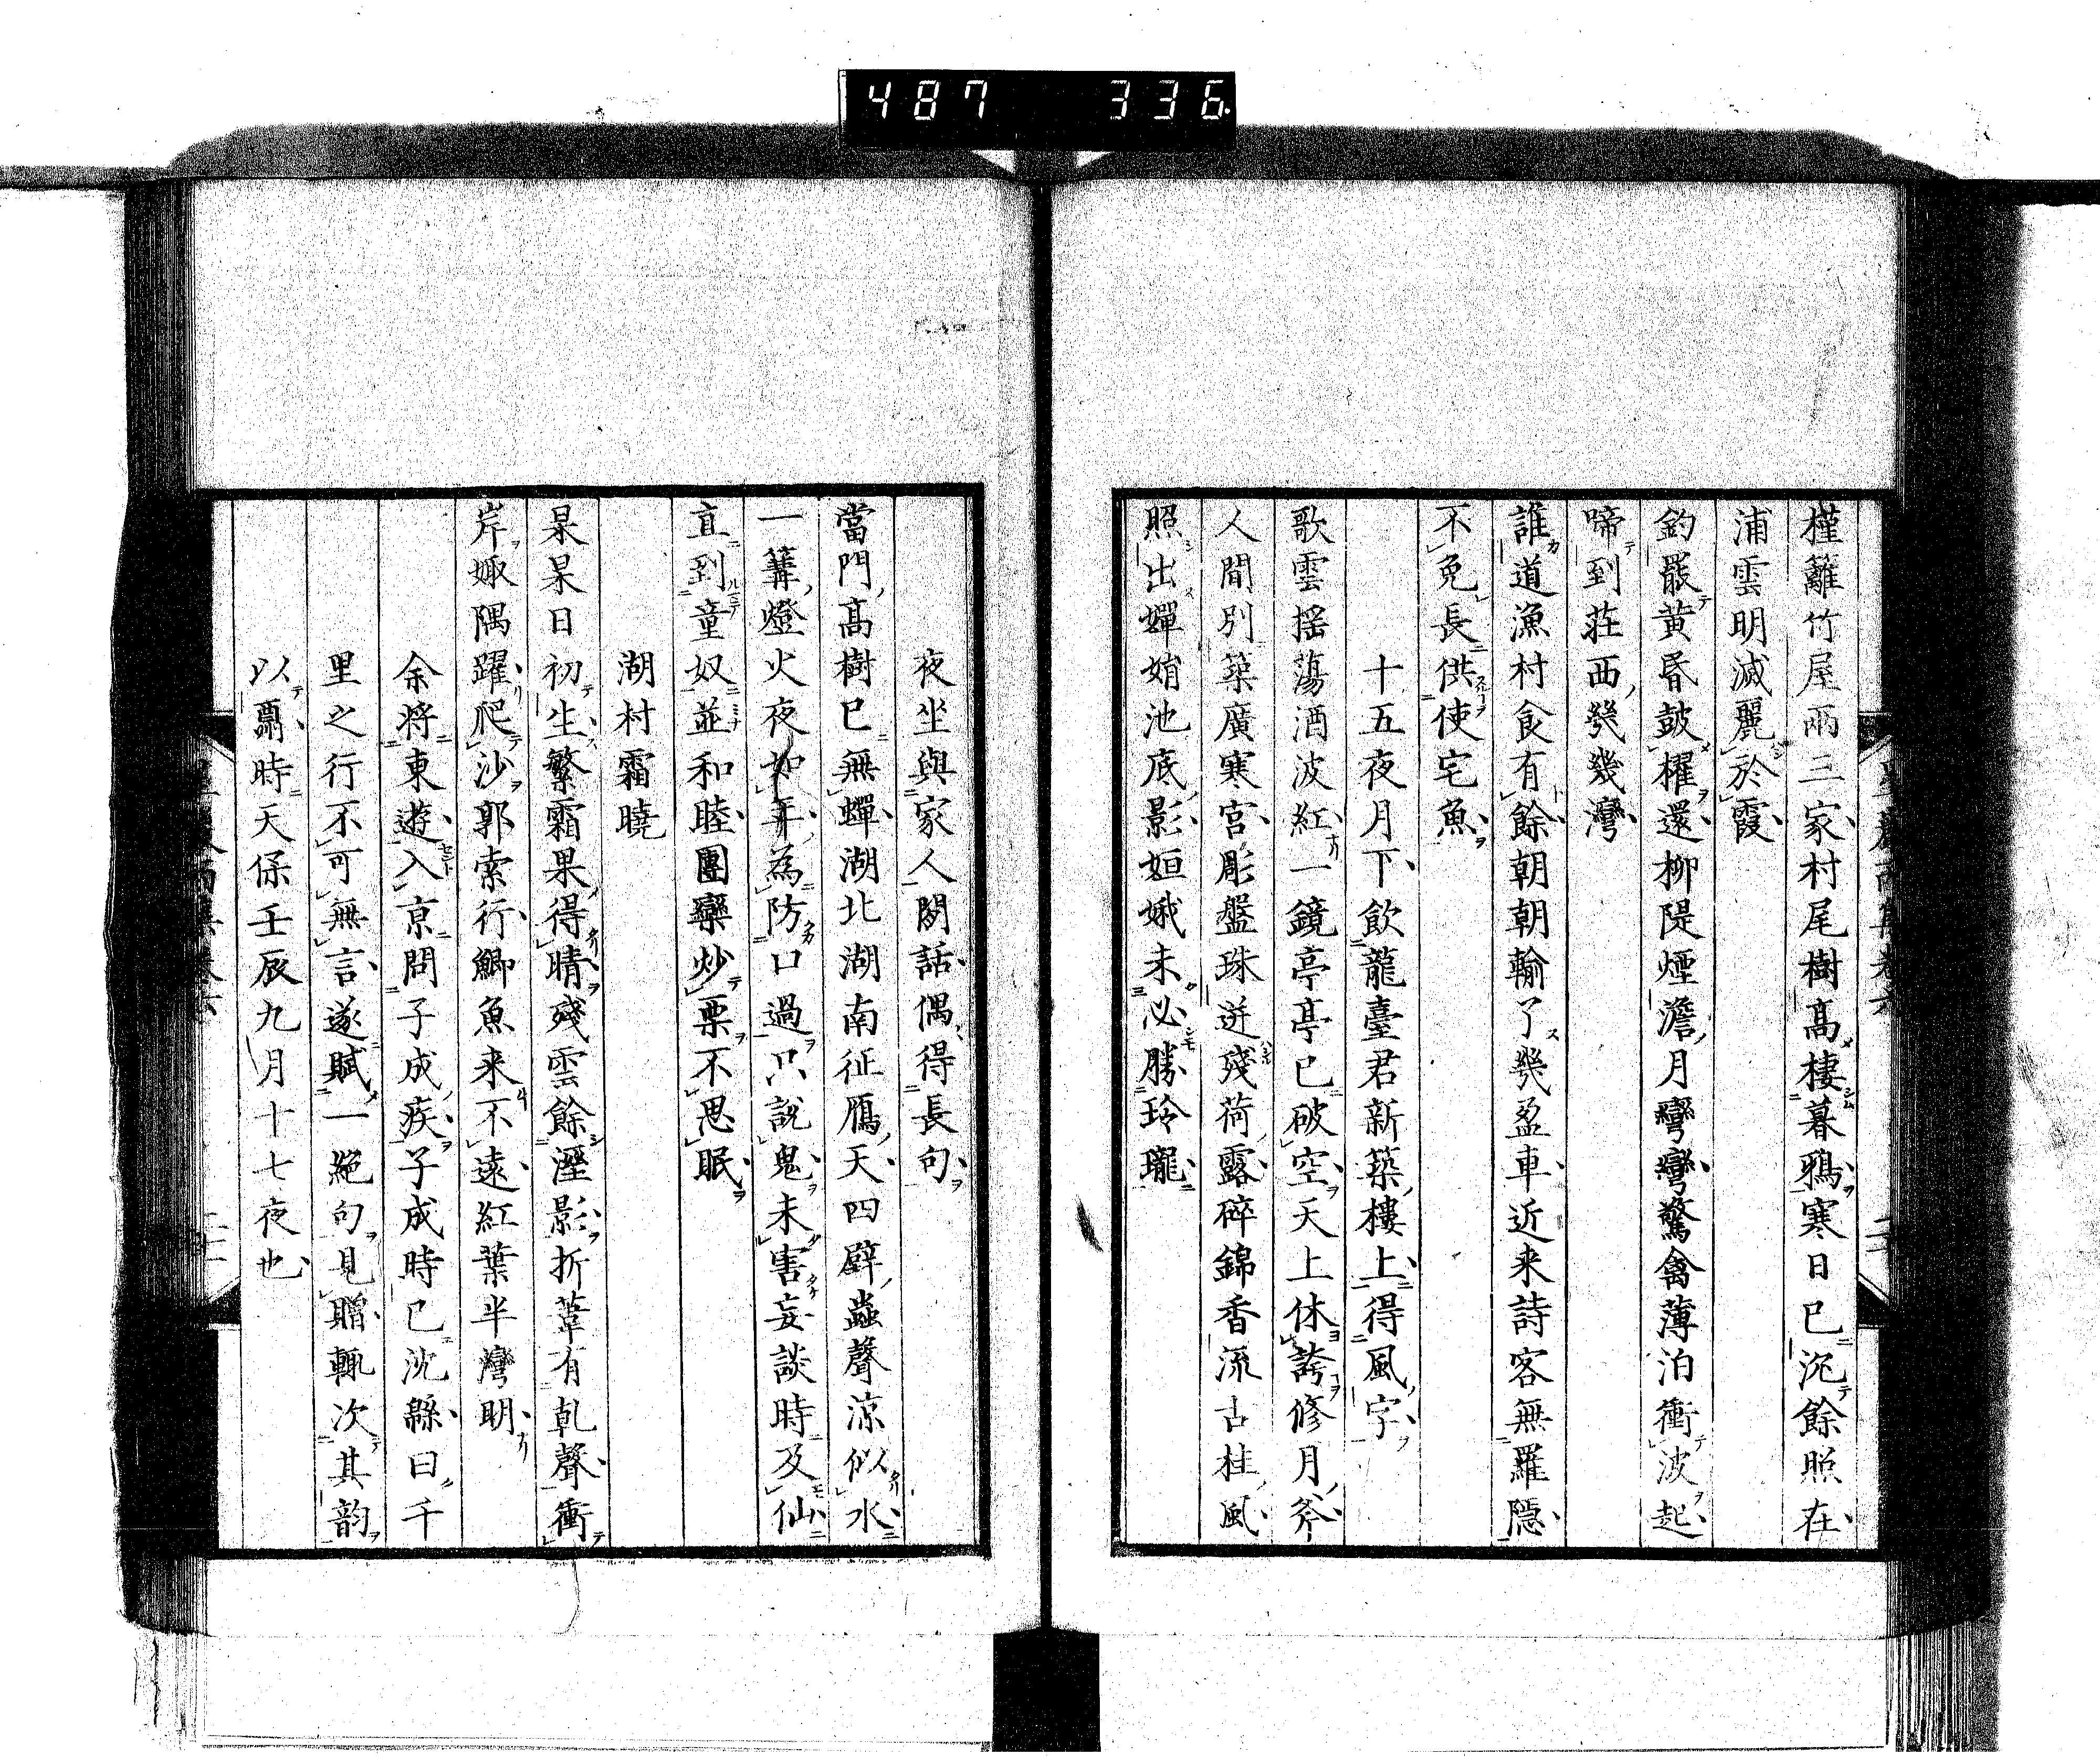 487 336
槿籬竹屋両三家村尾樹高棲暮鴉寒日已沉餘照在
浦雲明滅麗於霞
釣罷黄昏皷櫂還柳隄煙澹月彎彎驚禽薄泊衝波起
啼到荘西幾幾灣
誰道漁村食有餘朝朝輸了幾盈車近来詩客無羅隠
不免長供使宅魚
十五夜月下飲龍臺君新築樓上得風字
歌雲揺蕩酒波紅一鏡亭亭已破空天上休誇修月斧
人間別築廣寒宮彫盤珠迸殘荷露碎錦香流古桂風
照出嬋娟池底影姮娥未必勝玲瓏
夜坐與家人閒話偶得長句
當門高樹已無蟬湖北湖南征鴈天四壁蟲聲涼似水
一篝燈火夜如年為防口過只説鬼未害妄談時及仙
直到童奴並和睦團欒炒栗不思眠
湖村霜曉
杲杲日初生繁霜果得晴殘雲餘溼影折葦有乾聲衝
岸娵隅躍爬沙郭索行鯽魚来不遠紅葉半灣明
余将東遊入京問子成疾子成時已沈緜曰千
里之行不可無言遂賦一絶句見贈輙次其韵
以酬時天保壬辰九月十七夜也